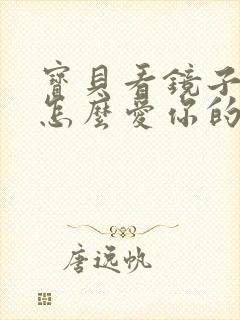 寶貝看鏡子
怎麼愛你的
唐遠帆